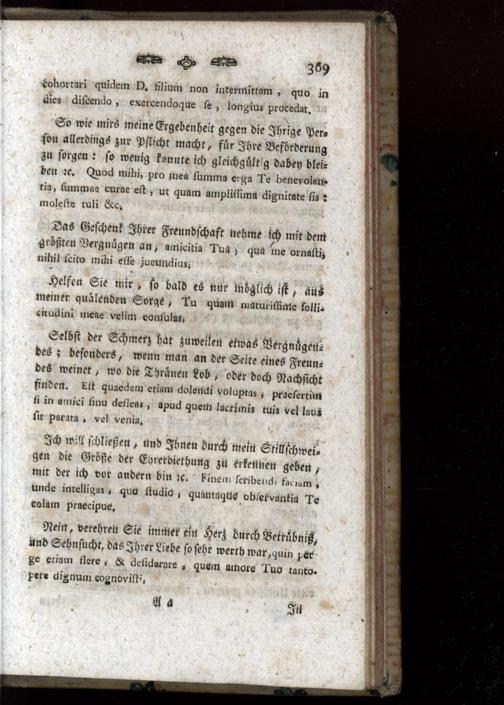 369
cohortari quidem D. filium non intermittam, quo in
dies diſcendo, exercendoque ſe, longius procedat.
So wie mirs meine Ergebenheit gegen die Ihrige Per⸗
ſon allerdings zur Pflicht macht, für Ihre Beförderung
zu ſorgen: ſo wenig konnte ich gleichgültig dabey blei⸗
ben ꝛc. Quod mihi, pro mea ſumma erga Te benevolen-
tia, ſummae curae eſt, ut quam ampliſſima dignitate ſis:
moleſte tuli &c.
Das Geſchenk Ihrer Freundſchaft nehme ich mit dem
größten Vergnügen an, amicitia Tua, qua me ornaſti,
nihil ſcito mihi eſſe jucundius.
Helfen Sie mir, ſo bald es nur möglich iſt, aus
meiner quälenden Sorge, Tu quam maturiſſime ſolli-
citudini meae velim conſulas.
Selbſt der Schmerz hat zuweilen etwas Vergnügen⸗
des; beſonders, wenn man an der Seite eines Freun⸗
des weinet, wo die Thränen Lob, oder doch Nachſicht
finden. Eſt quaedam etiam dolendi voluptas, praeſertim
ſi in amici ſinu defleas, apud quem lacrimis tuis vel laus
ſit parata, vel venia.
Ich will ſchließen, und Ihnen durch mein Stillſchwei⸗
gen die Größe der Ehrerbiethung zu erkennen geben,
mit der ich vor andern bin ꝛc. Finem ſcribendi faciam,
unde intelligas, quo ſtudio, quantaque obſervantia Te
colam praecipue.
Nein, verehren Sie immer ein Herz durch Betrübniß,
und Sehnſucht, das Ihrer Liebe ſo ſehr werth war, quin per-
ge etiam flere, & deſiderare, quem amore Tuo tanto-
pere dignum cognoviſti.
A a
In